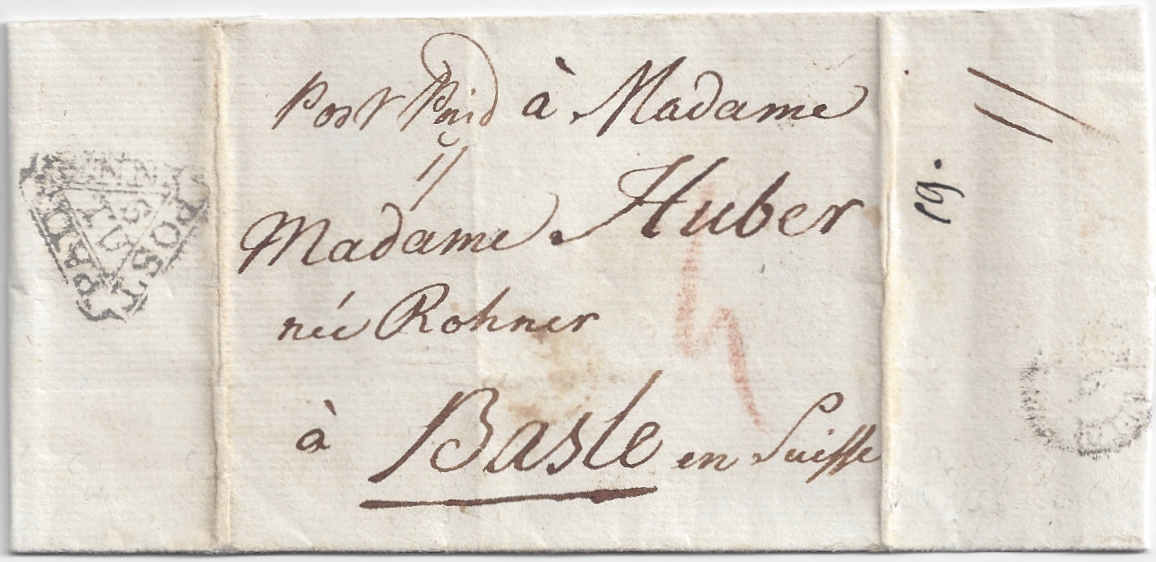 Post Paid à Madame
Madame Huber
née Rohner
à Basle en Suisse
POST
PAID
19.